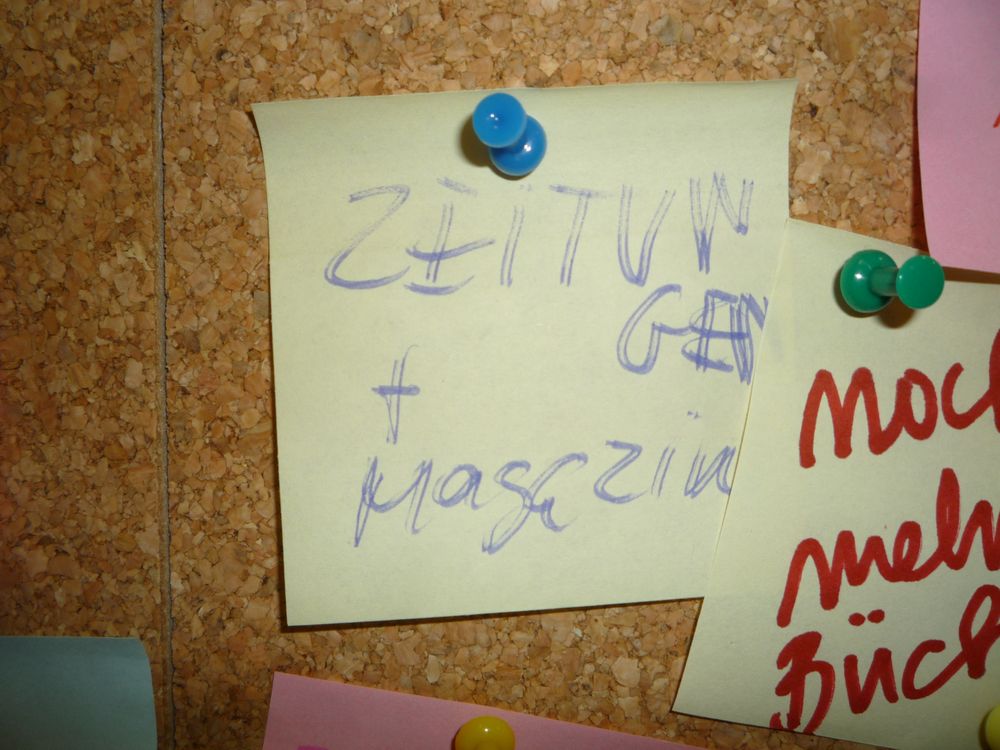 ZEITUN
GEN
+
Magazin
noch
mehr
Büch